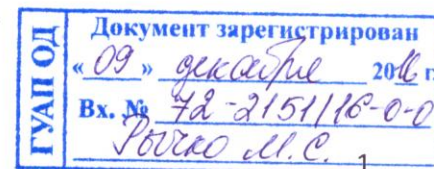 ГУАП ОД
Документ зарегистрирован
«09» декабря 2016 г.
Вх. № 72-2151/16-0-0
Рычко М.С.
1